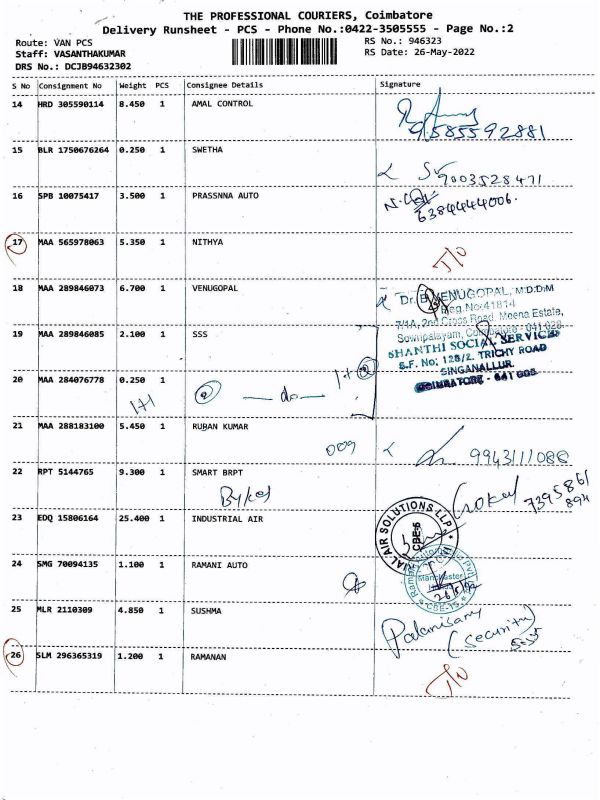 THE PROFESSIONAL COURIERS, Coimbatore
Delivery Runsheet - PCS - Phone No.:0422-3505555 - Page No.:2
Route: VAN PCS
RS No.: 946323
Staff: VASANTHAKUMAR
RS Date: 26-May-2022
DRS No.: DCJB94632302
S No Consignment No Weight PCS Consignee Details Signature
14 HRD 305590114 8.450 1 AMAL CONTROL
9585592881
15 BLR 1750676264 0.250 1 SWETHA
9003528471
16 SPB 10075417 3.500 1 PRASSNNA AUTO
6384444006.
17 MAA 565978063 5.350 1 NITHYA
T/O
18 MAA 289846073 6.700 1 VENUGOPAL
Dr. B. VENUGOPAL, M.D.D.M
Reg. No:41814
7/1A, 2nd Cross Road, Meena Estate,
Sowripalayam, Coimbatore - 641 028
19 MAA 289846085 2.100 1 SSS
SHANTHI SOCIAL SERVICE
S.F. No: 128/2, TRICHY ROAD
SINGANALLUR
COIMBATORE - 641 005
20 MAA 284076778 0.250 1
1+1 2 — do — 1+2
21 MAA 288183100 5.450 1 RUBAN KUMAR
009 9943111088
22 RPT 5144765 9.300 1 SMART BRPT
Bykes
7395861
894
23 EDQ 15806164 25.400 1 INDUSTRIAL AIR
AIR SOLUTIONS LLP
CBE-6
24 SMG 70094135 1.100 1 RAMANI AUTO
26/5/22
CBE-15
25 MLR 2110309 4.850 1 SUSHMA
Palanisamy
(Security)
26 SLM 296365319 1.200 1 RAMANAN
T/O